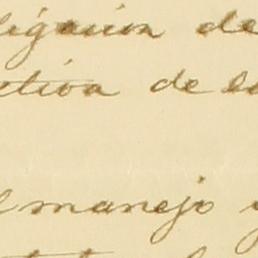 ligación de
ctiva de la
l manejo y